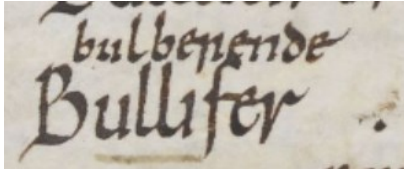 bulberende
Bullifer .